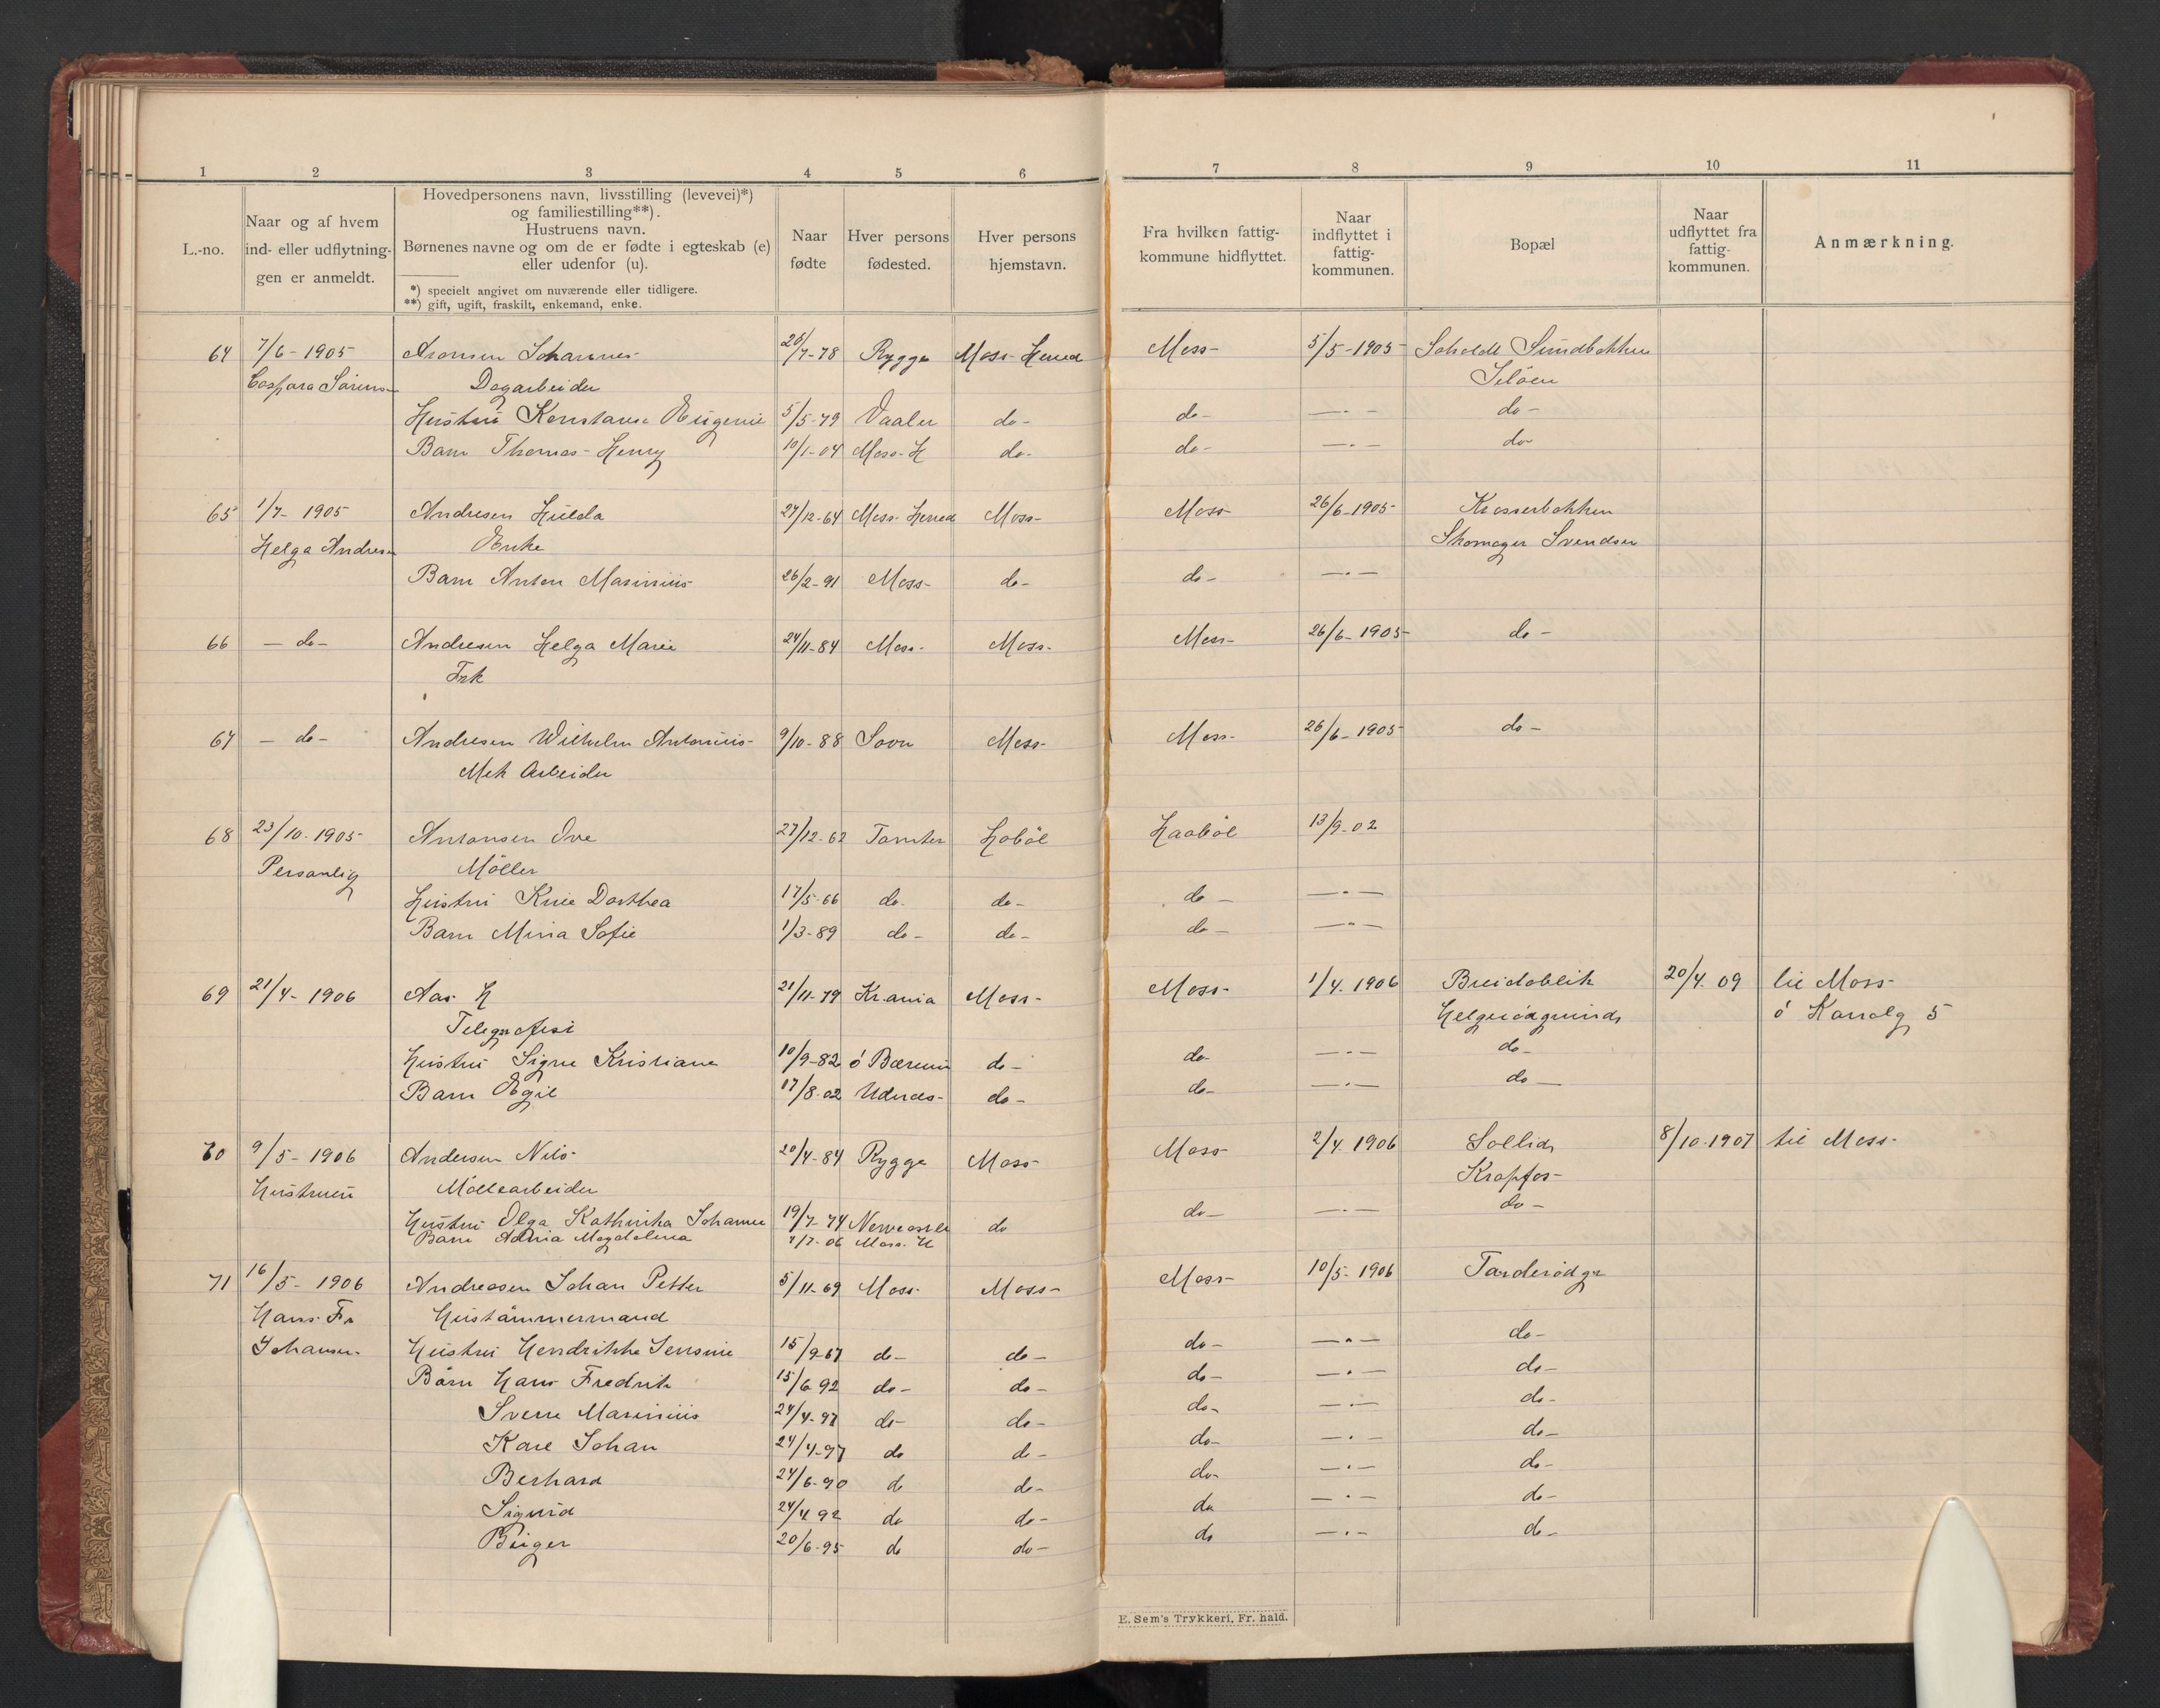 1 2 3 4 5 6 7 8 9 10 11
L.-no.
Naar og af hvem
ind- eller udflytnin-
gen er anmeldt.
Hovedpersonens navn, livsstilling (levevei)*)
og familiestilling**).
Hustruens navn.
Børnenes navne og om de er fødte i egteskab (e)
eller udenfor (u).
*) specielt angivet om nuværende eller tidligere.
**) gift, ugift, fraskilt, enkemand, enke.
Naar
fødte
Hver persons
fødested.
Hver persons
hjemstavn.
Fra hvilken fattig-
kommune hidflyttet.
Naar
indflyttet i
fattig-
kommunen.
Bopæl
Naar
udflyttet fra
fattig-
kommunen.
Anmærkning.
64 7/6 - 1905 Aronsen Johannes 26/7-78 Rygge Moss Herred Moss- 5/5-1905- Sundbakken
Caspara Sørens Dagarbeider Jeløen
Hustru Konstanse Eugenie 5/5-79 Vaaler do- do- —.— do-
Barn Thomas-Henry 10/1-04 Moss-H do- do- —.— do
65 1/7- 1905 Andresen Hulda 27/12-64 Moss-Herred Moss- Moss- 26/6-1905- Krosserbakken
Helga Andresen Enke Skomager Svendsen
Barn Anton Marinius 26/2-91 Moss- do- do- —.—
66 — do- Andresen Helga Marie 24/11-84 Moss- Moss- Moss- 26/6-1905- do-
Frk
67 — do- Andresen Wilhelm Antonius- 9/10-88 Sovn Moss- Moss- 26/6-1905- do-
Mek Arbeider
68 23/10-1905- Antonsen Ove 27/12-62 Tomter Hobøl Haabøl 13/9-02
Personlig Møller
Hustru Dorthea 17/5-66 do. do- do- —.—
Barn Mina Sofie 1/3-89 do- do- do- —.—
69 21/4- 1906 Aas H 21/11-79 Kr.ania Moss- Moss- 1/4. 1906 Breidablik 20/4. 09 til Moss-
Telegrafist Helgerødgrunds ó 5
Hustru Signe Kristiane 10/9-82 ó Bærum do- do- —.— do-
Barn Egil 17/8-02 Udnæs- do- do- —.— do—
70 9/5- 1906 Andersen Nils- 20/4-84 Rygge Moss- Moss- 2/4. 1906 Sollid 8/10-1907 til Moss-
Hustruen Møllearbeider Krapfos-
Hustru Olga Kathinka Johanne 19/7-74 do do- —.— do-
Barn Magdalena 7/7-06 Moss. H
71 16/5- 1906 Andreasen Johan Petter 5/11-69 Moss- Moss- Moss- 10/5-1906
Hans Fr Hustømmermand
Johansen- Hustru Hendrikke Jensine 15/9-67 do- do- do- —.— do-
Børn Hans Fredrik 15/6-92 do- do- do- —.— do-
Sverre Marinius 24/4-97 do- do- do- —.— do-
Kare Johan 24/4-97 do do- do- —.— do-
Berhard 24/6-90 do do- do- —.— do-
Sigurd 24/4 92 do do- do —.— do-
Birger 20/6-95 do do- do —.— do-
E. Sem's Trykkeri, Fr. hald.